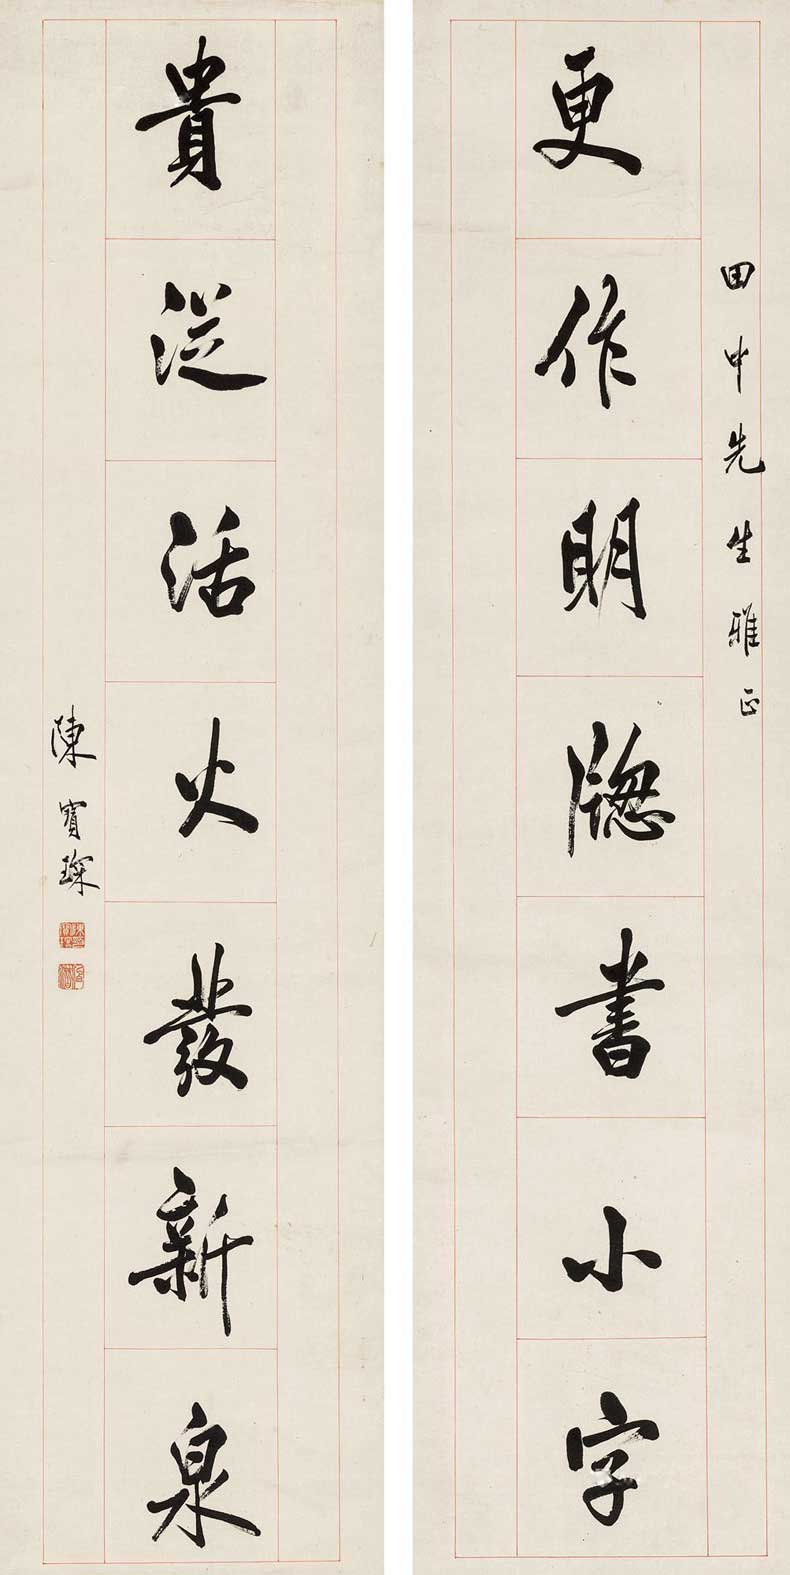 田中先生雅正
更作明牕書小字
貴從活火發新泉
陳寶琛